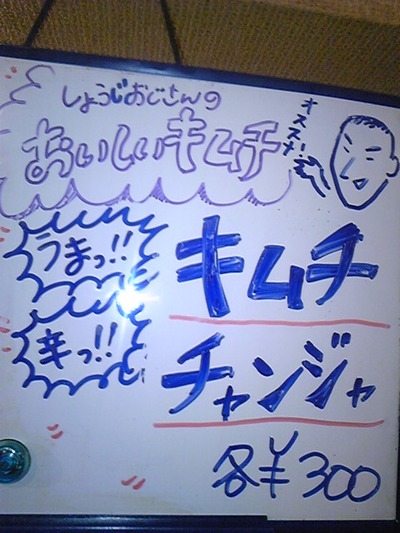 しょうじおじさんの
おいしいキムチ
オススメ
うまっ!!
辛っ!!
キムチ
チャンジャ
各¥300